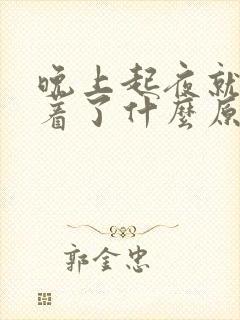 晚上起夜就
着了什麼原
郭金忠